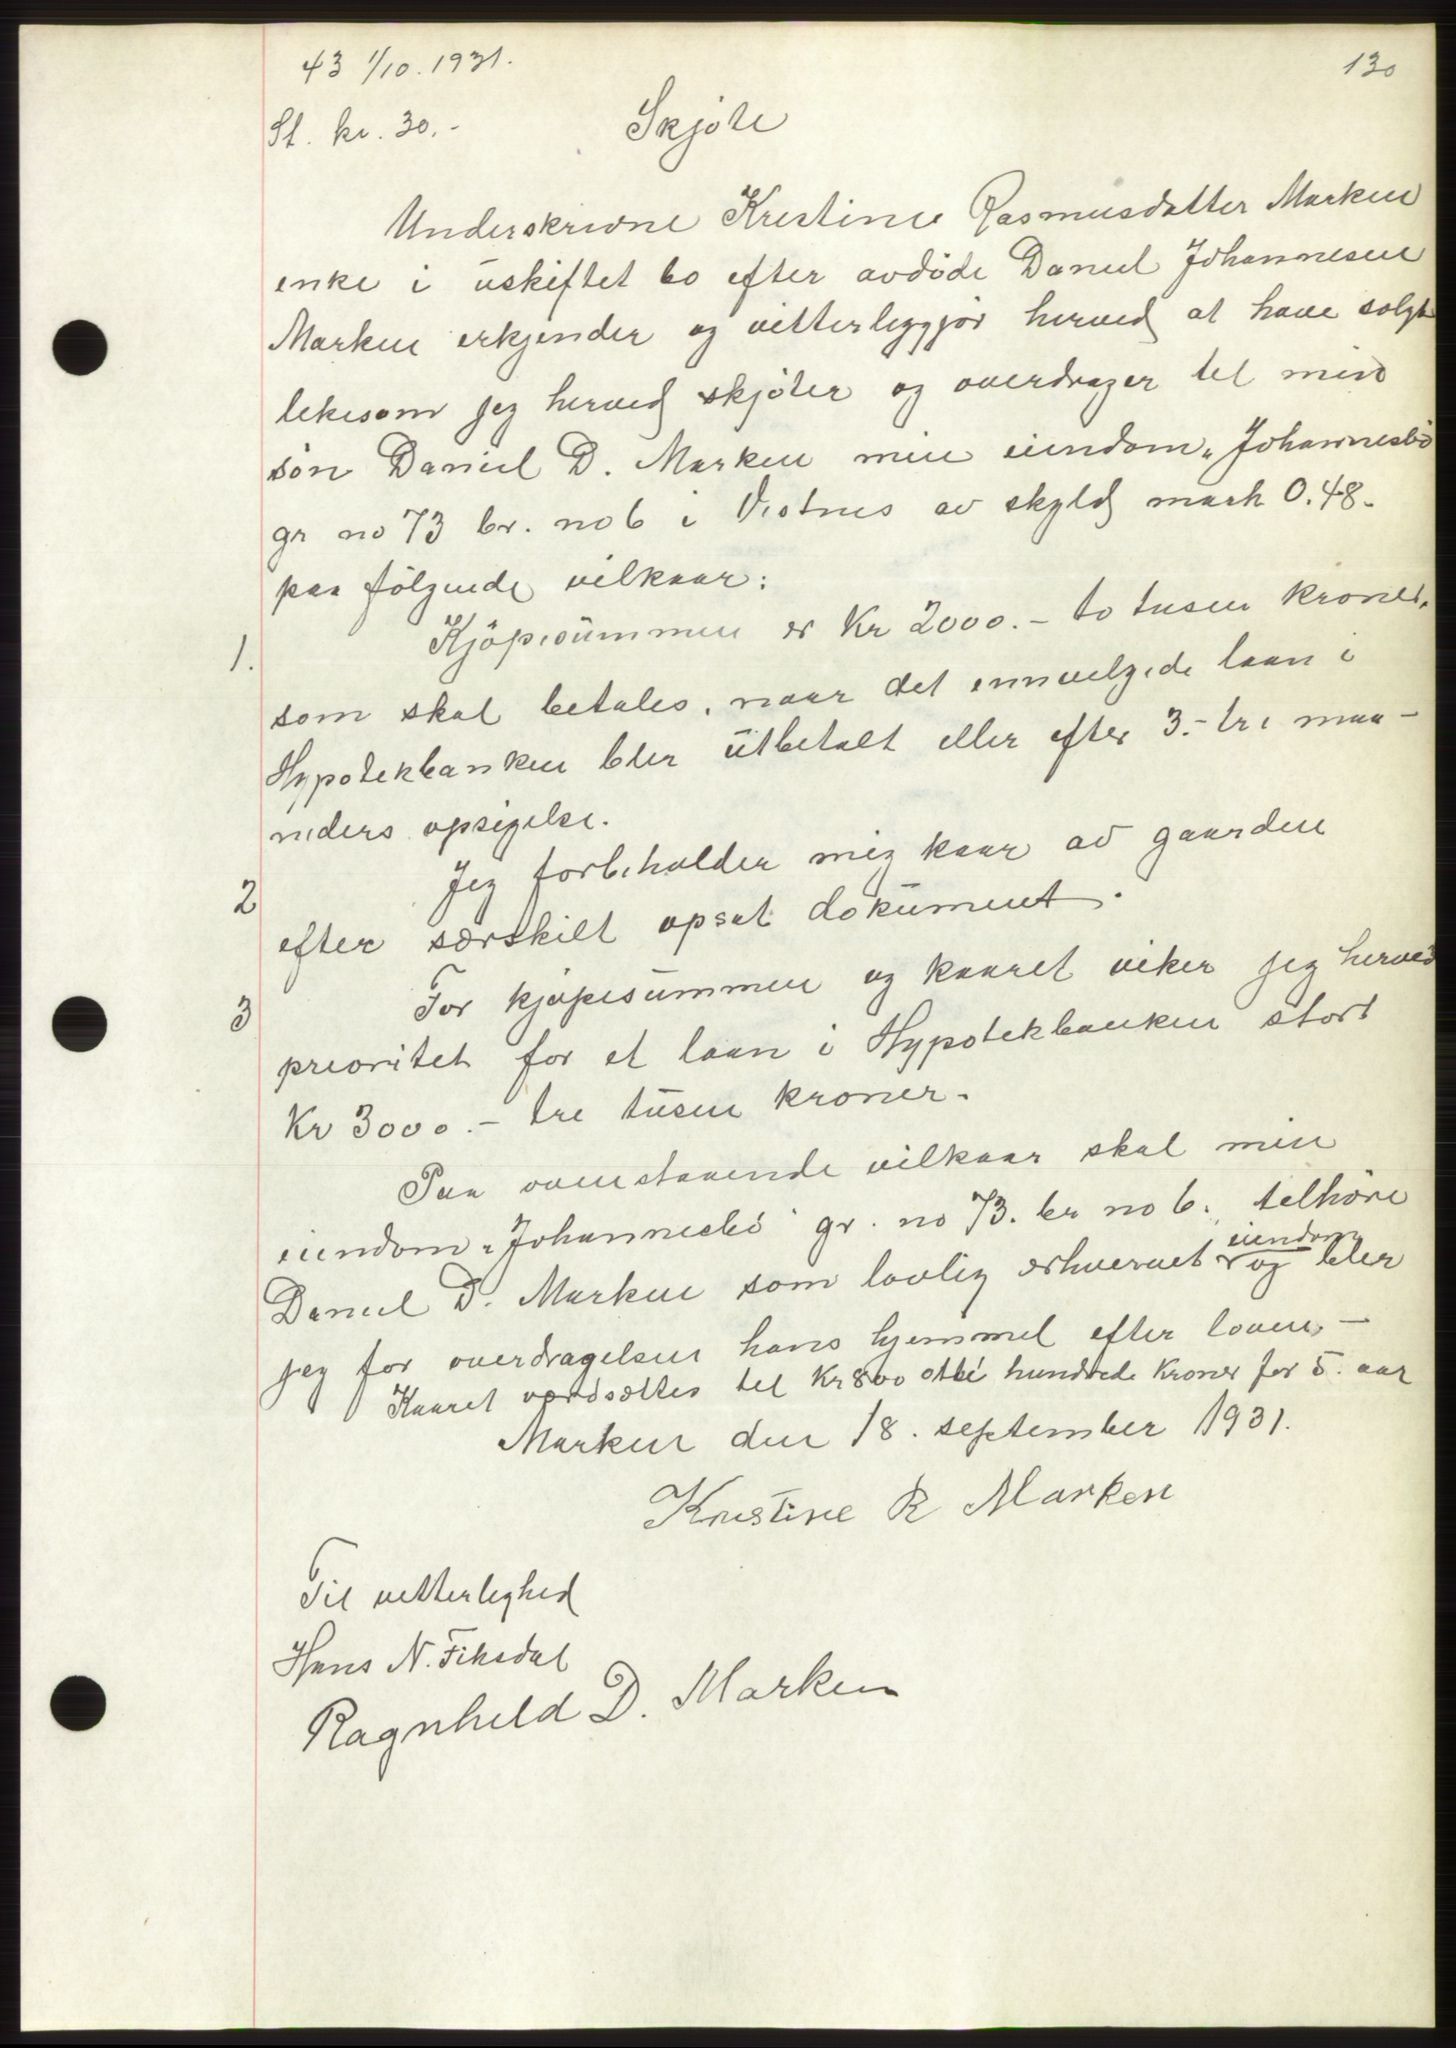 43 1/10. 1931.
130
St. kr. 30.-
Skjöte
Underskrevne Kristine Rasmusdatter Marken
enke i uskiftet bo efter avdöde Daniel Johannesen
Marken erkjender og vitterleggjör herved at have solgt
likesom jeg herved skjöter og overdrager til min
sön Daniel D. Marken min eiendom „Johannesbö
gr no 73 br. no 6 i Vestnes av skyld mark 0.48.
paa fölgende vilkaar:
1. Kjöpesummen er Kr 2000.- to tusen kroner,
som skal betales, naar det innvelgede laan i
Hypotekbanken bler utbetalt eller efter 3.- tre maa-
neders opsigelse.
2 Jeg forbeholder mig kaar av gaarden
efter særskilt opsat dokument.
3 For kjöpesummen og kaaret viker jeg herved
prioritet for et laan i Hypotekbanken stort
Kr 3000.- tre tusen kroner.
Paa ovenstaaende vilkaar skal min
eiendom „Johannesbö" gr. no 73. br no 6. telhöre
eiendom
Daniel D. Marken som lovlig erhvervet og bler
jeg for overdragelsen hans hjemmel efter loven,-
Kaaret værdsættes tel Kr 800 otte hundrede kroner for 5. aar
Marken den 18. september 1931.
Kristine R Marken
Til vetterleghed
Hans N. Fiksdal
Ragnheld D. Marken